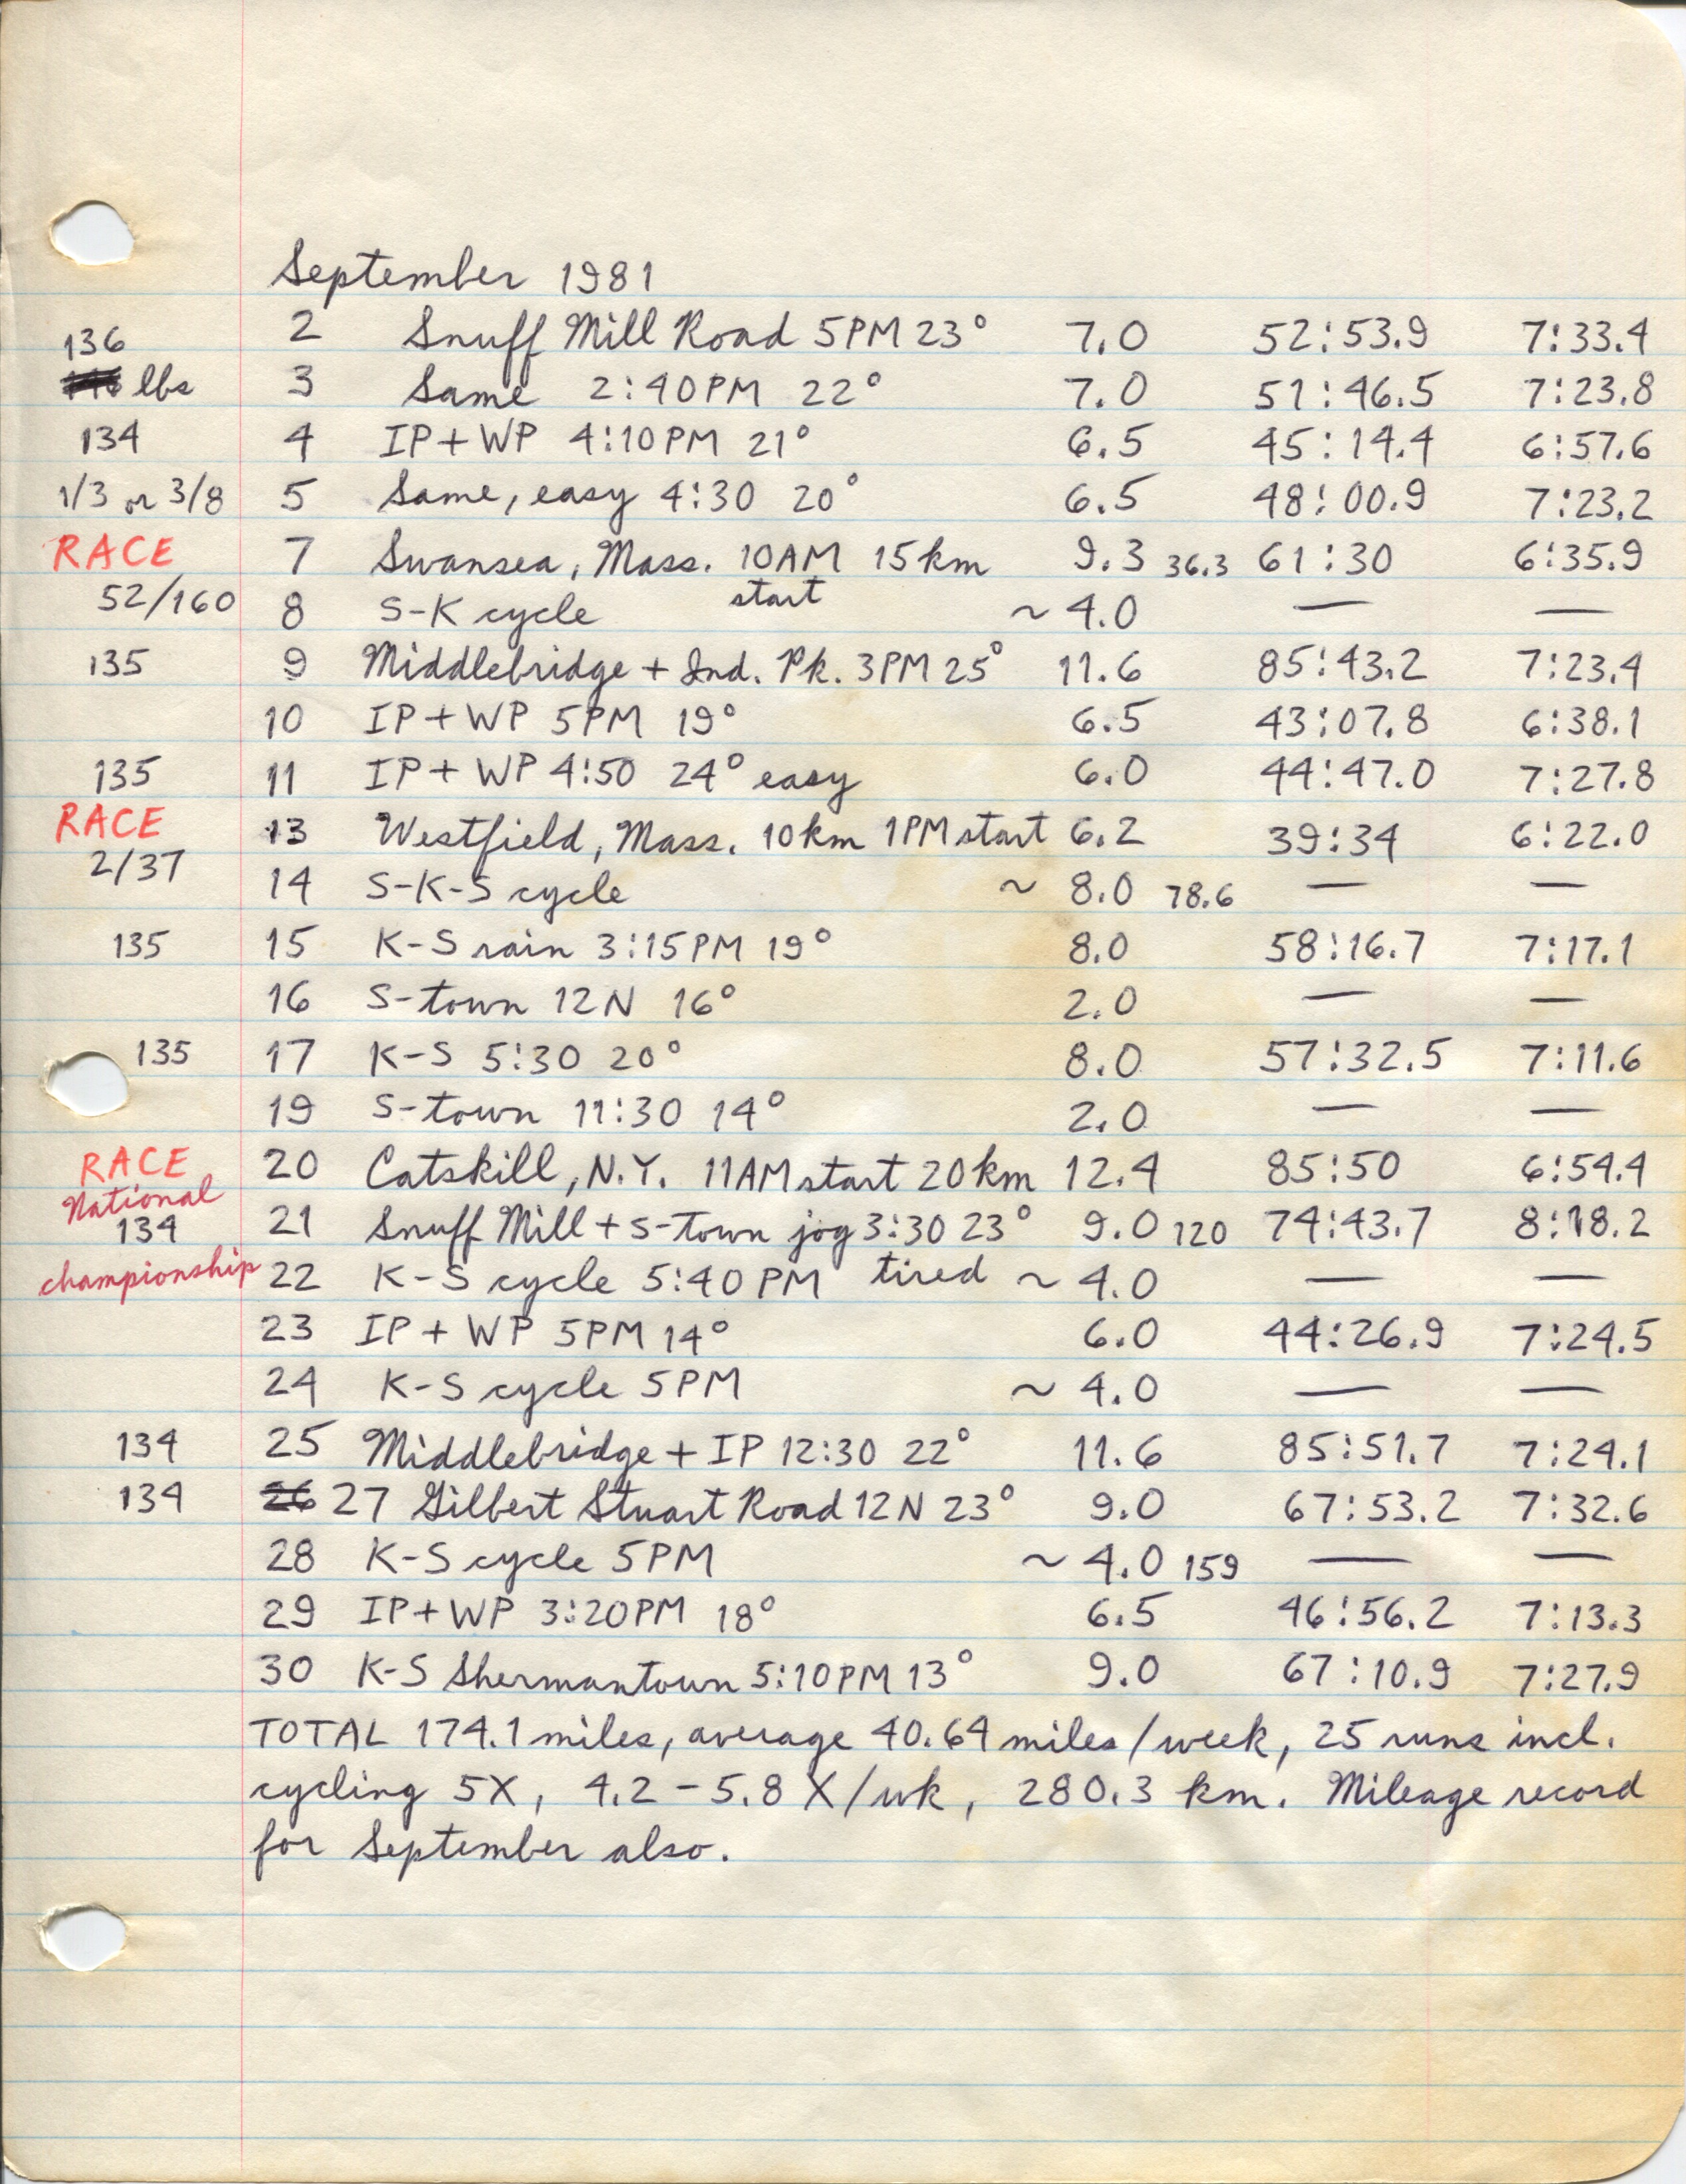 September 1981
136 2 Snuff Mill Road 5PM 23° 7.0 52:53.9 7:33.4
lbs 3 Same 2:40PM 22° 7.0 51:46.5 7:23.8
134 4 IP+WP 4:10PM 21° 6.5 45:14.4 6:57.6
1/3 or 3/8 5 Same, easy 4:30 20° 6.5 48:00.9 7:23.2
RACE 7 Swansea, Mass. 10AM 15km 9.3 36.3 61:30 6:35.9
start
52/160 8 S-K cycle ~4.0 — —
135 9 Middlebridge + Ind. Pk. 3PM 25° 11.6 85:43.2 7:23.4
10 IP+WP 5PM 19° 6.5 43:07.8 6:38.1
135 11 IP+WP 4:50 24° easy 6.0 44:47.0 7:27.8
RACE 13 Westfield, Mass. 10km 1PM start 6.2 39:34 6:22.0
2/37 14 S-K-S cycle ~ 8.0 78.6 — —
135 15 K-S rain 3:15PM 19° 8.0 58:16.7 7:17.1
16 S-town 12N 16° 2.0 — —
135 17 K-S 5:30 20° 8.0 57:32.5 7:11.6
19 S-town 11:30 14° 2.0 — —
RACE 20 Catskill, N.Y. 11AM start 20km 12.4 85:50 6:54.4
National
134 21 Snuff Mill + S-Town jog 3:30 23° 9.0 120 74:43.7 8:18.2
championship 22 K-S cycle 5:40PM tired ~ 4.0 — —
23 IP+WP 5PM 14° 6.0 44:26.9 7:24.5
24 K-S cycle 5PM ~ 4.0 — —
134 25 Middlebridge + IP 12:30 22° 11.6 85:51.7 7:24.1
134 26 27 Gilbert Stuart Road 12N 23° 9.0 67:53.2 7:32.6
28 K-S cycle 5PM ~ 4.0 159 — —
29 IP+WP 3:20PM 18° 6.5 46:56.2 7:13.3
30 K-S Shermantown 5:10PM 13° 9.0 67:10.9 7:27.9
TOTAL 174.1 miles, average 40.64 miles/week, 25 runs incl.
cycling 5X, 4.2-5.8 X/wk, 280.3 km. Mileage record
for September also.